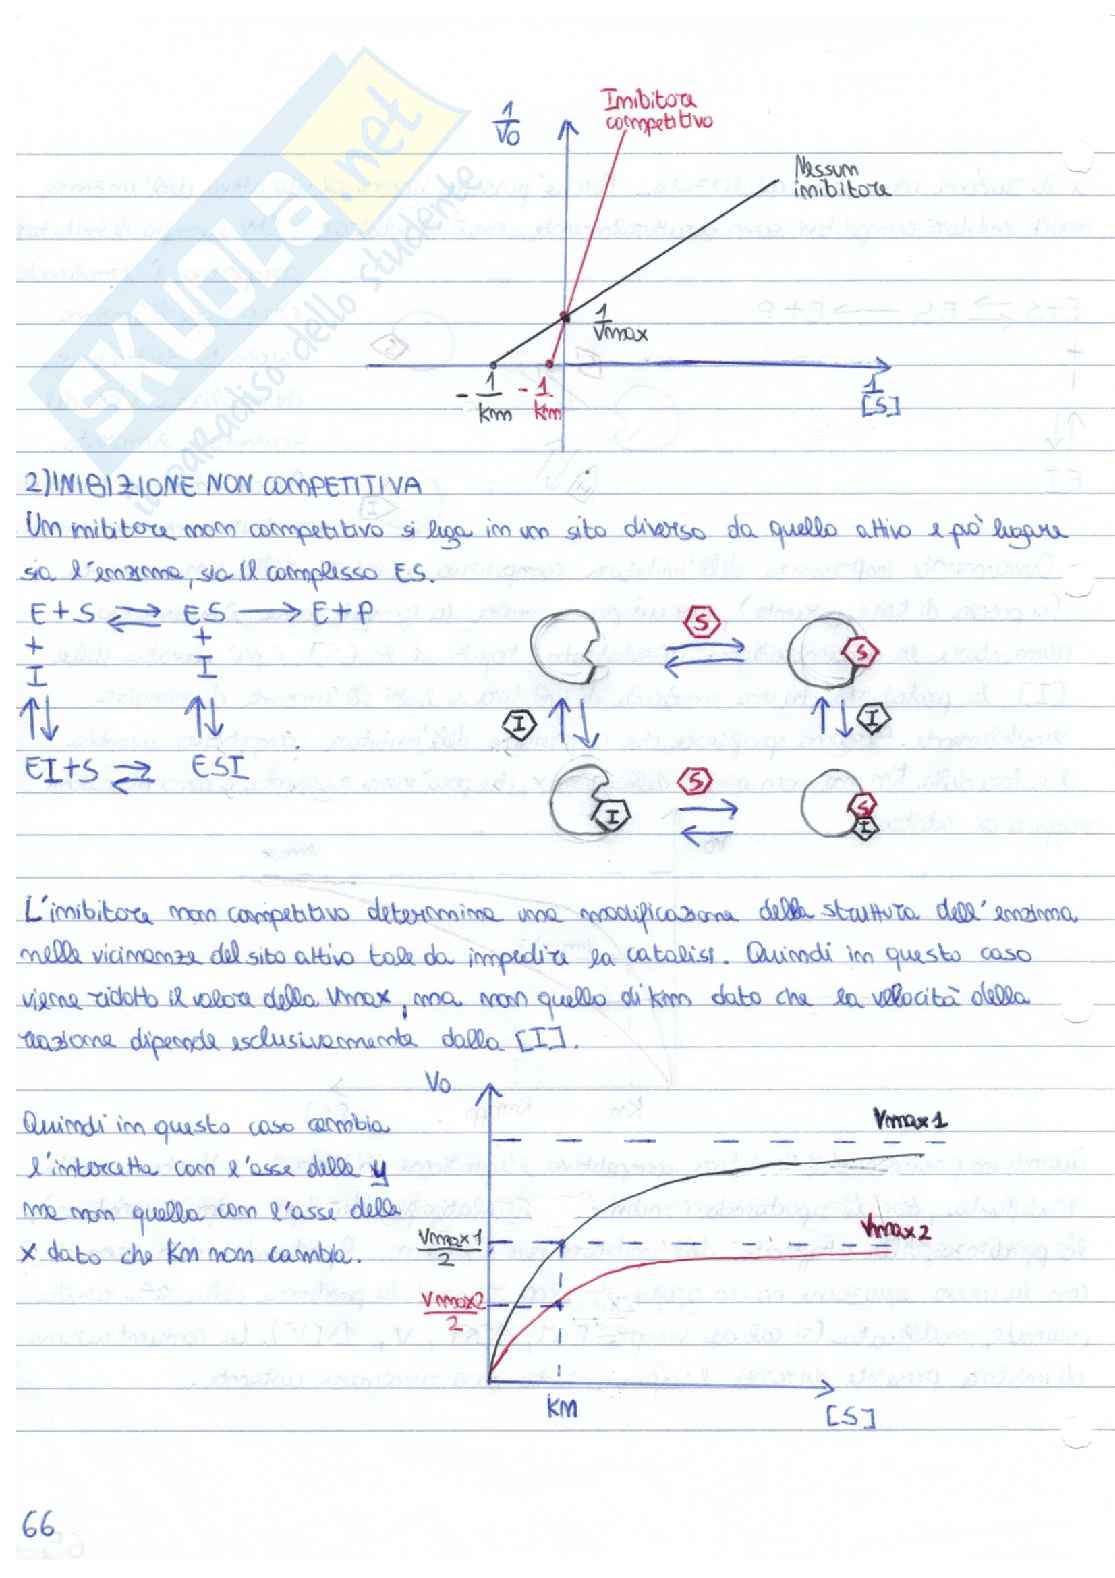 SKUOLA.net
il paradiso dello studente
1/V0
Inibitore
competitivo
Nessun
inibitore
1/Vmax
-1/km
-1/km
1/[S]
2) INIBIZIONE NON COMPETITIVA
Un inibitore non competitivo si lega in un sito diverso da quello attivo e può legare
sia l'enzima, sia il complesso ES.
E+S ⇌ ES → E+P
+ +
I I
⇅ ⇅
EI+S ⇌ ESI
S
S
I
I
S
I
S
I
L'inibitore non competitivo determina una modificazione della struttura dell'enzima
nelle vicinanze del sito attivo tale da impedire la catalisi. Quindi in questo caso
viene ridotto il valore della Vmax, ma non quello di km dato che la velocità della
reazione dipende esclusivamente dalla [I].
Quindi in questo caso cambia
l'intercetta con l'asse delle y
ma non quella con l'asse delle
x dato che Km non cambia.
V0
Vmax1
Vmax2
Vmax1/2
Vmax2/2
KM
[S]
66